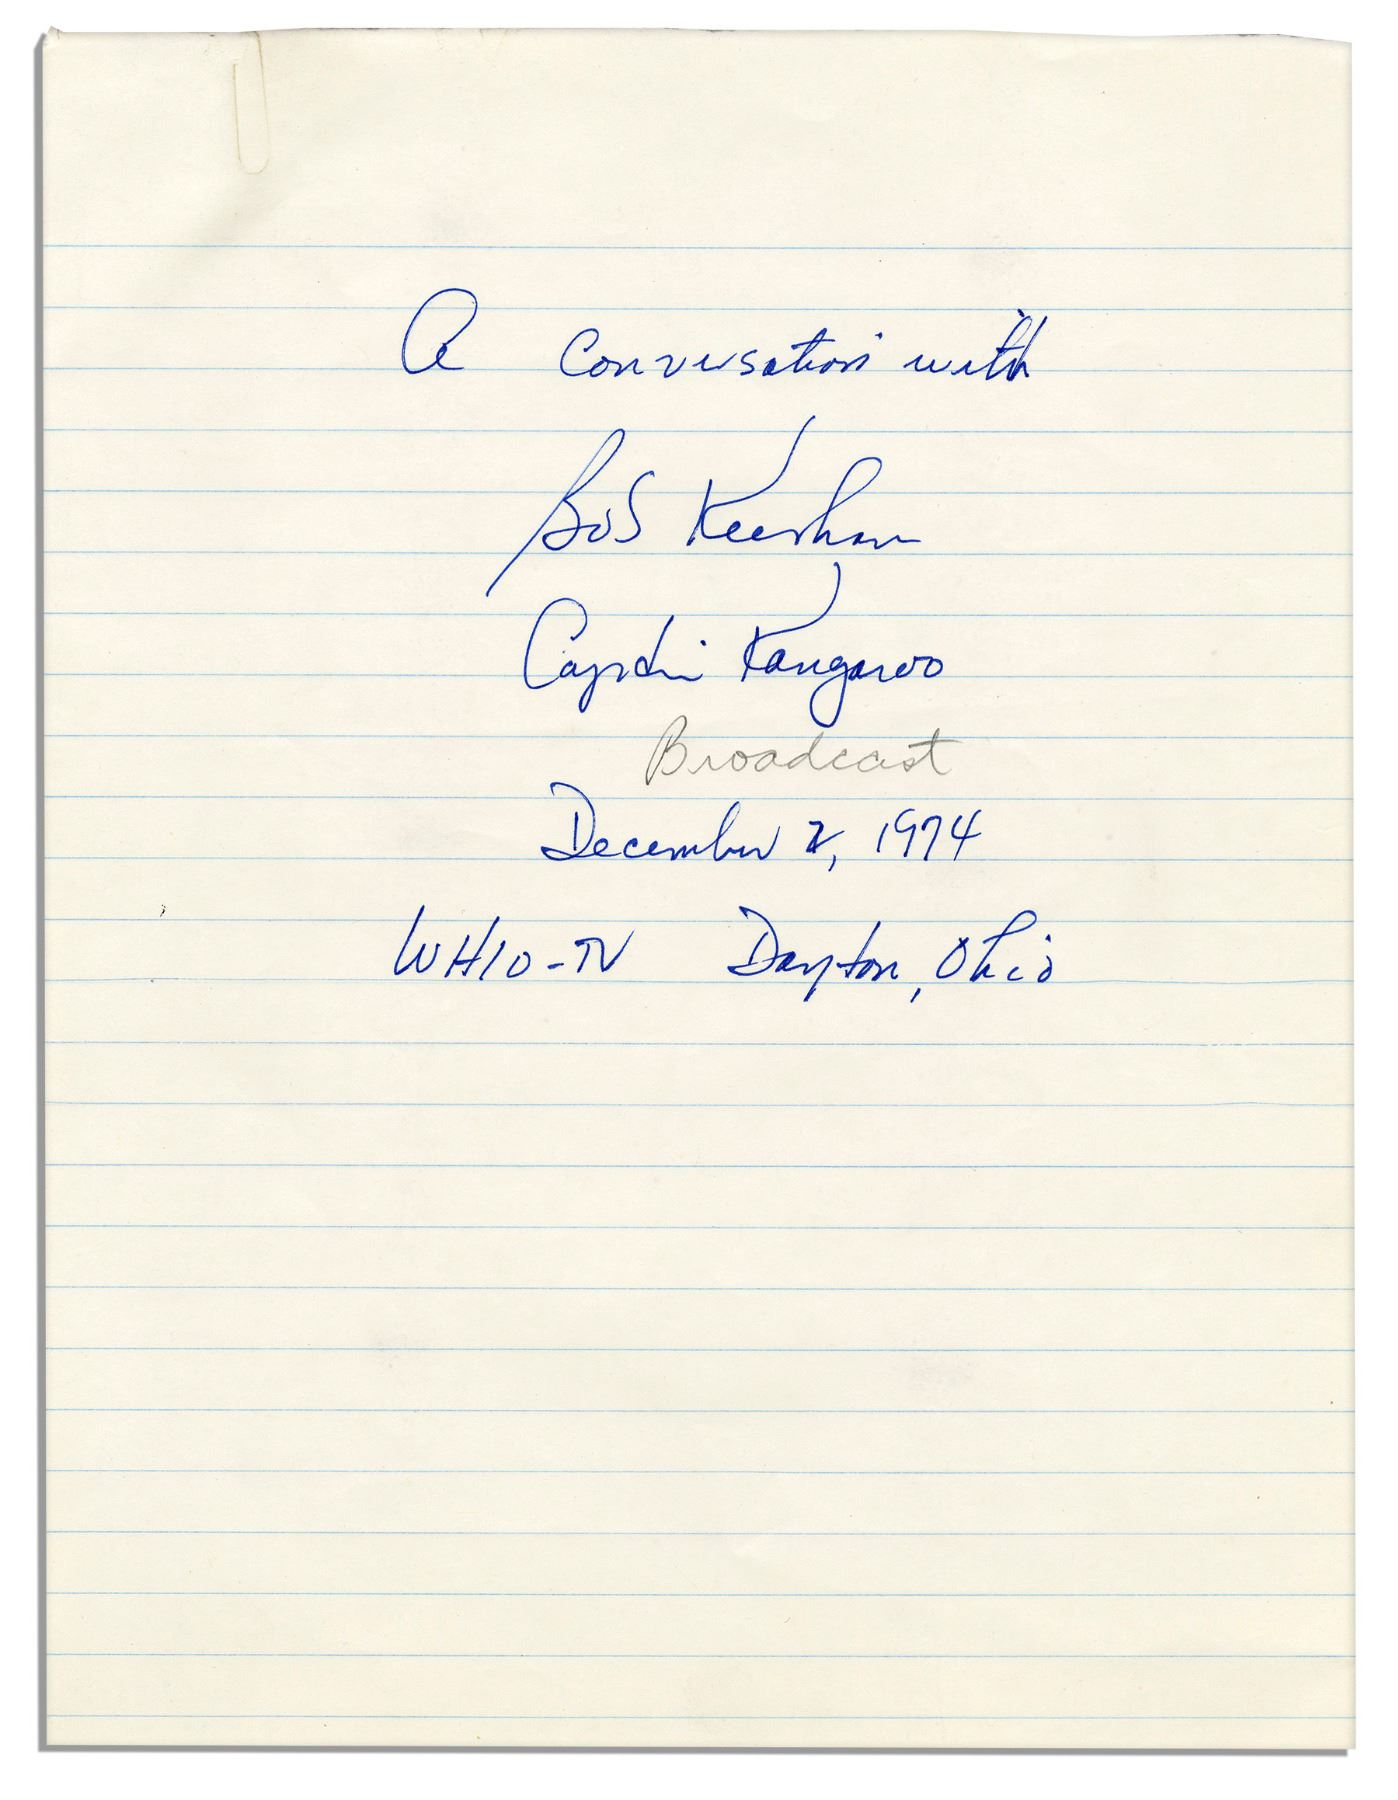 A Conversation with
Bob Keeshan
Captain Kangaroo
Broadcast
December 2, 1974
WHIO-TV Dayton, Ohio